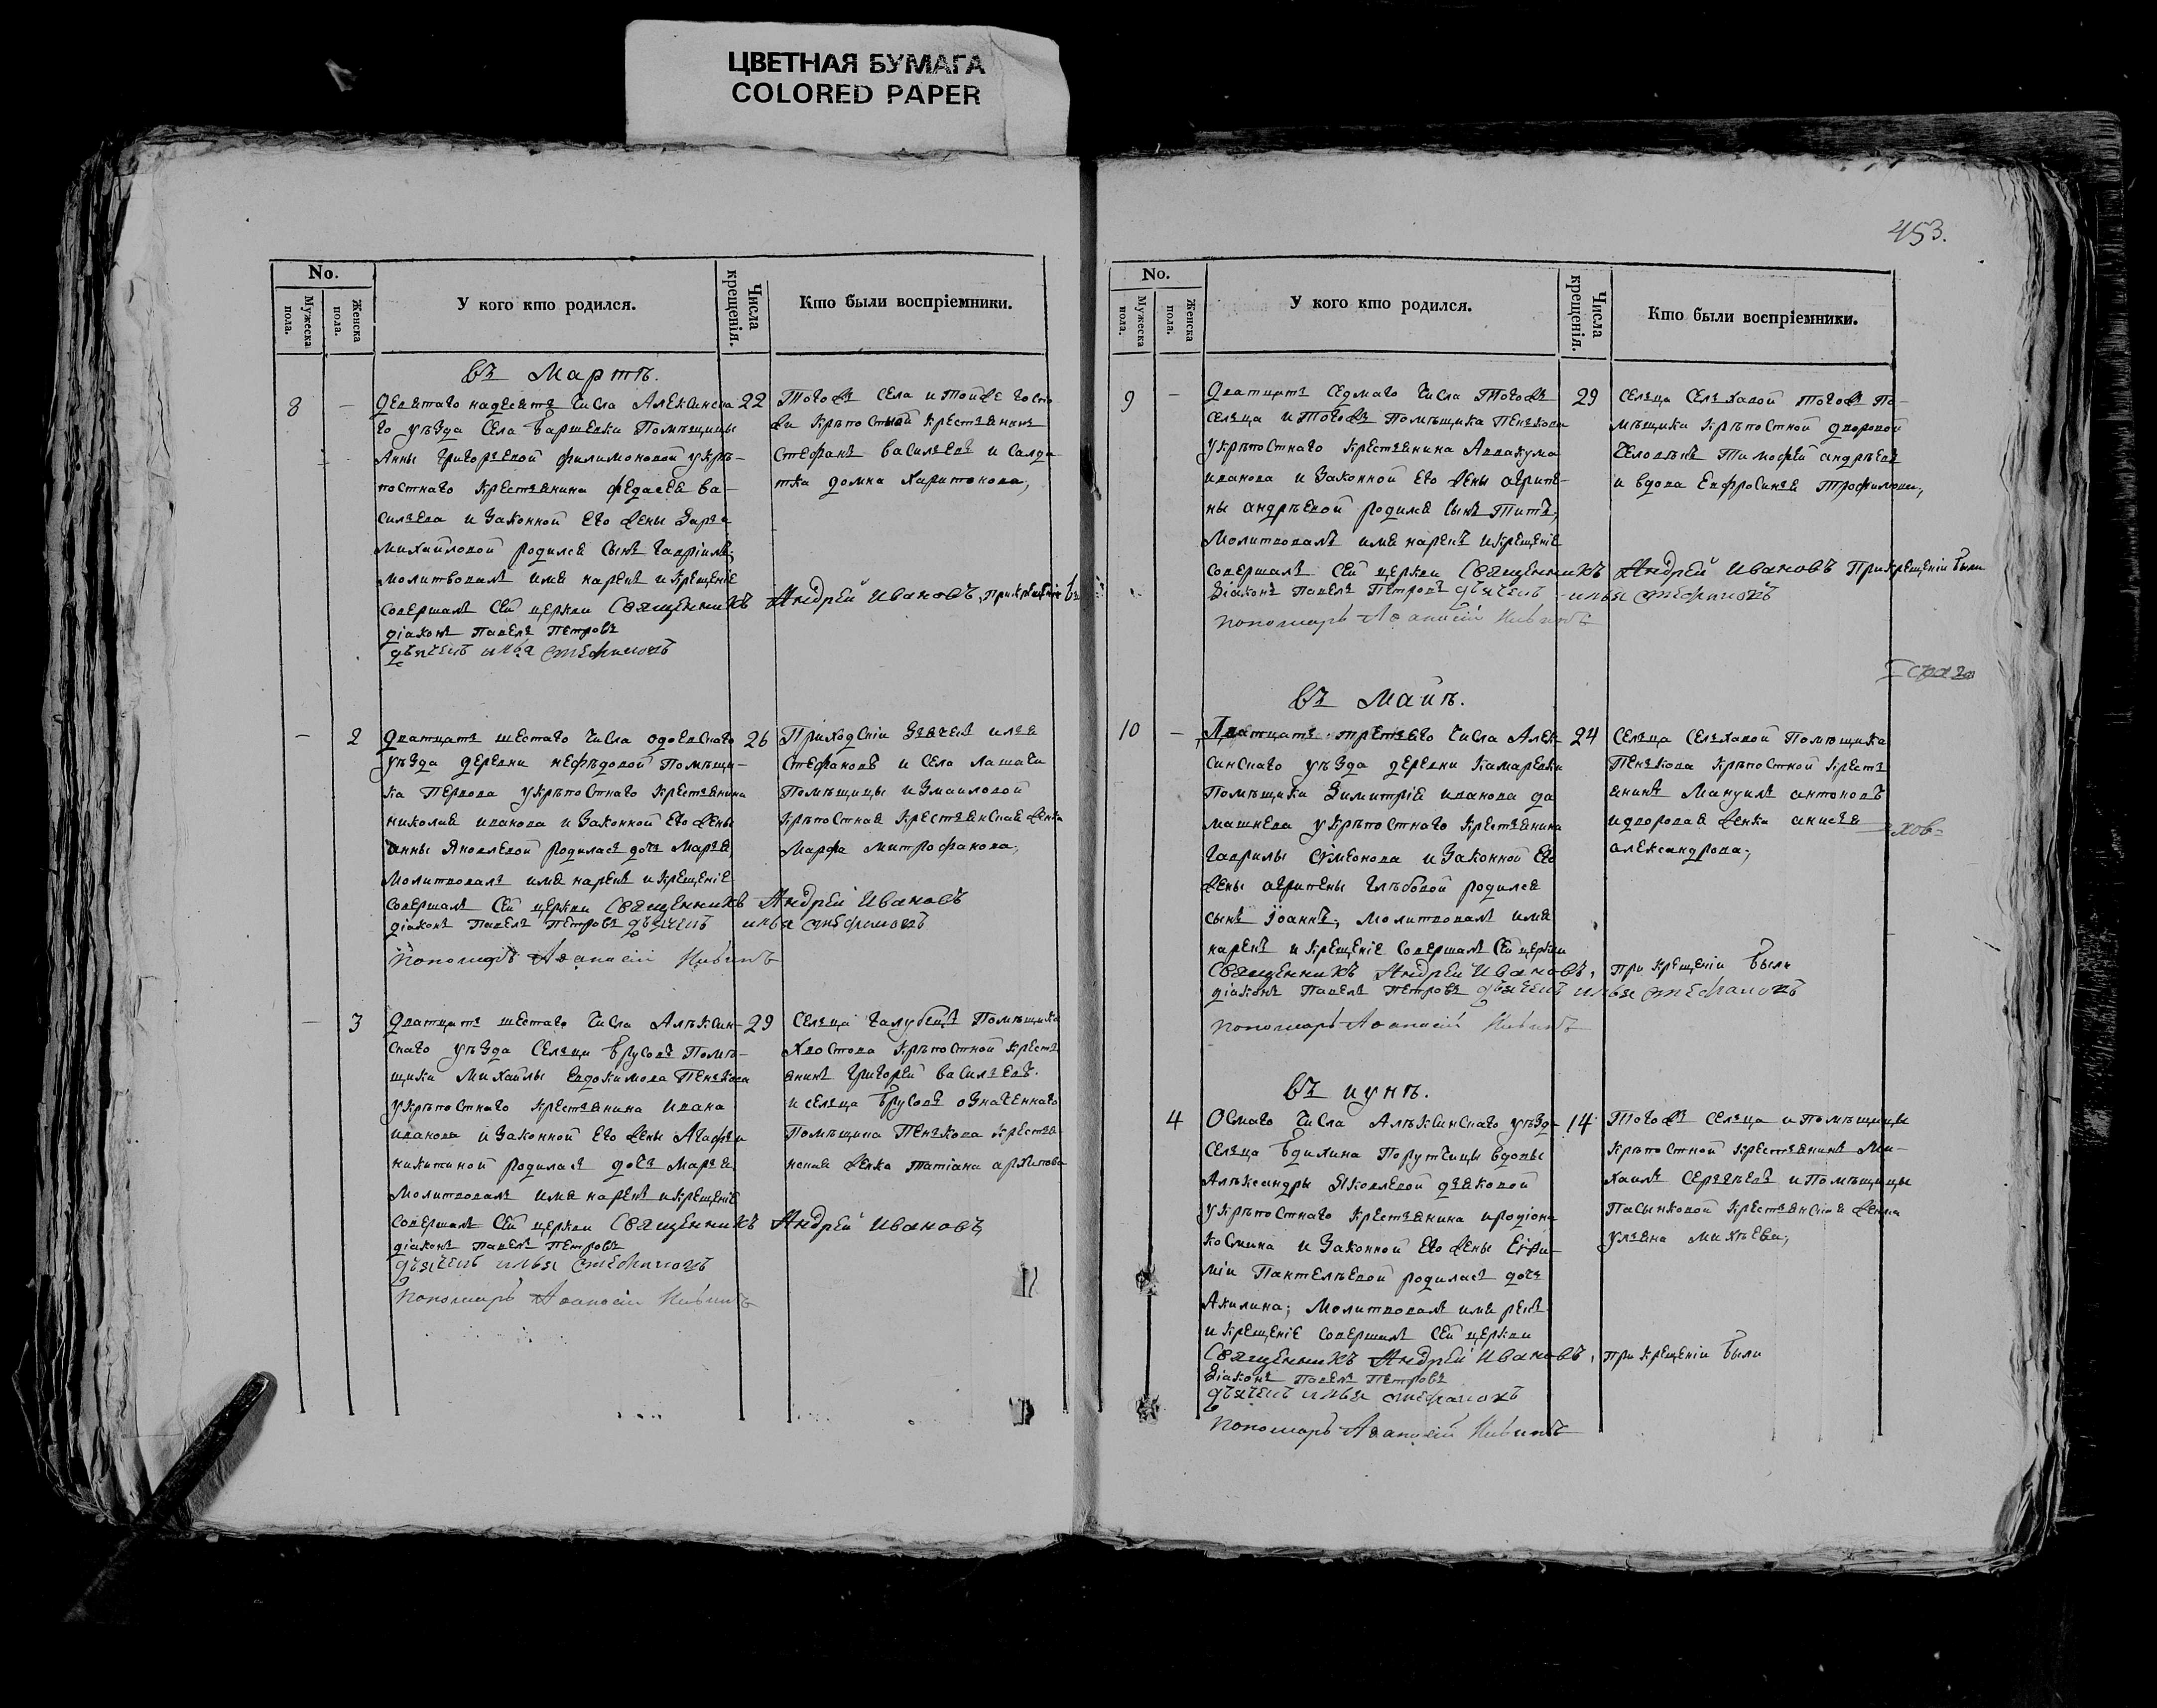 ЦВЕТНАЯ БУМАГА
COLORED PAPER
No.
Мужеска пола.
Женска пола.
У кого кто родился.
Числа крещенія.
Кто были воспріемники.
въ Мартѣ.
8 -
Девятаго надесять числа Алексинска
го уѣзда села Помѣщицы
Анны Григорьевой Филимоновой укрѣ-
постнаго крестьянина Ва-
сильева и законной его жены Дарьи
Михайловой родился сынъ Гавріилъ;
молитвовалъ имя нарекъ и крещеніе
совершалъ сей церкви Священникъ Андрей Ивановъ, при крещеніи
діаконъ Павелъ Петровъ
дьячекъ Илья Стефановъ
22
Тогожъ села и тойже госпо
жи крѣпостный крестьянинъ
Стефанъ Васильевъ и салда
тка Домна Харитонова;
- 2
Дватцать шестаго числа Одоевскаго
уѣзда деревни Нефѣдовой Помѣщи-
ка укрѣпостнаго крестьянина
Николая Иванова и законной его жены
Анны Яковлевой родилась дочь Марья,
молитвовалъ имя нарекъ и крещеніе
совершалъ сей церкви Священникъ Андрей Ивановъ
діаконъ Павелъ Петровъ дьячекъ Илья Стефановъ
Пономарь Аѳанасій
26
Приходскій дьячекъ Илья
Стефановъ и села
Помѣщицы Измаиловой
крѣпостная крестьянская женка
Марфа Митрофанова;
- 3
Дватцать шестаго числа Алѣксин-
скаго уѣзда сельца Брусовъ Помѣ-
щика Михайлы Евдокимова Пенькова
укрѣпостнаго крестьянина Ивана
Иванова и законной его жены Агафьи
Никитиной родилась дочь Марья
молитвовалъ имя нарекъ и крещеніе
совершалъ сей церкви Священникъ Андрей Ивановъ
діаконъ Павелъ Петровъ
дьячекъ Илья Стефановъ
Пономарь Аѳанасій
29
сельца Помѣщика
Хвостова крѣпостной кресть
янинъ Григорей Васильевъ.
и сельца Брусовъ означеннаго
Помѣщика Пенькова крестья
нская женка Татіана Архипова
453.
No.
Мужеска пола.
Женска пола.
У кого кто родился.
Числа крещенія.
Кто были воспріемники.
9 -
Дватцать седмаго числа тогожъ
сельца и тогожъ Помѣщика Пенькова
укрѣпостнаго крестьянина Аввакума
Иванова и законной его жены Агрипе-
ны Андрѣевой родился сынъ Титъ;
молитвовалъ имя нарекъ и крещеніе
совершалъ сей церкви Священникъ Андрей Ивановъ При крещеніи были
діаконъ Павелъ Петровъ дьячекъ Илья Стефановъ
пономарь Аѳанасій
29
сельца тогожъ по-
мѣщика крѣпостной дворовой
человѣкъ Тимофей Андрѣевъ
и вдова Евфросинья Трофимова;
въ Маіѣ.
10 -
Дватцать третьяго числа Алек-
синскаго уѣзда деревни Камаревки
Помѣщика Димитрія Иванова
укрѣпостнаго крестьянина
Гаврилы Сѵмеонова и законной его
жены Агрипены Глѣбовой родился
сынъ Іоаннъ; молитвовалъ имя
нарекъ и крещеніе совершалъ сей церкви
Священникъ Андрей Ивановъ, при крещеніи были
діаконъ Павелъ Петровъ дьячекъ Илья Стефановъ
пономарь Аѳанасій
24
сельца Помѣщика
Пенькова крѣпостной кресть
янинъ Мануилъ Антоновъ
и дворовая женка Анисья
Александрова;
въ Іунѣ.
4
Осмаго числа Алѣксинскаго уѣзда
сельца Порутчицы вдовы
Алѣксандры Яковлевой Дьяковой
укрѣпостнаго крестьянина Иродіона
Космина и законной его жены Евфи-
міи Пантелѣевой родилась дочь
Акилина; молитвовалъ имя рекъ
и крещеніе совершалъ сей церкви
Священникъ Андрей Ивановъ, при крещеніи были
діаконъ Павелъ Петровъ
дьячекъ Илья Стефановъ
пономарь Аѳанасій
14
Тогожъ сельца и помѣщицы
крѣпостной крестьянинъ Ми-
хаилъ Сергѣевъ и помѣщицы
Пасынковой крестьянская женка
Ульяна Михѣева;